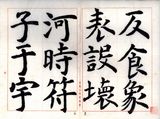 反食象
表設壞
河時符
子于宇